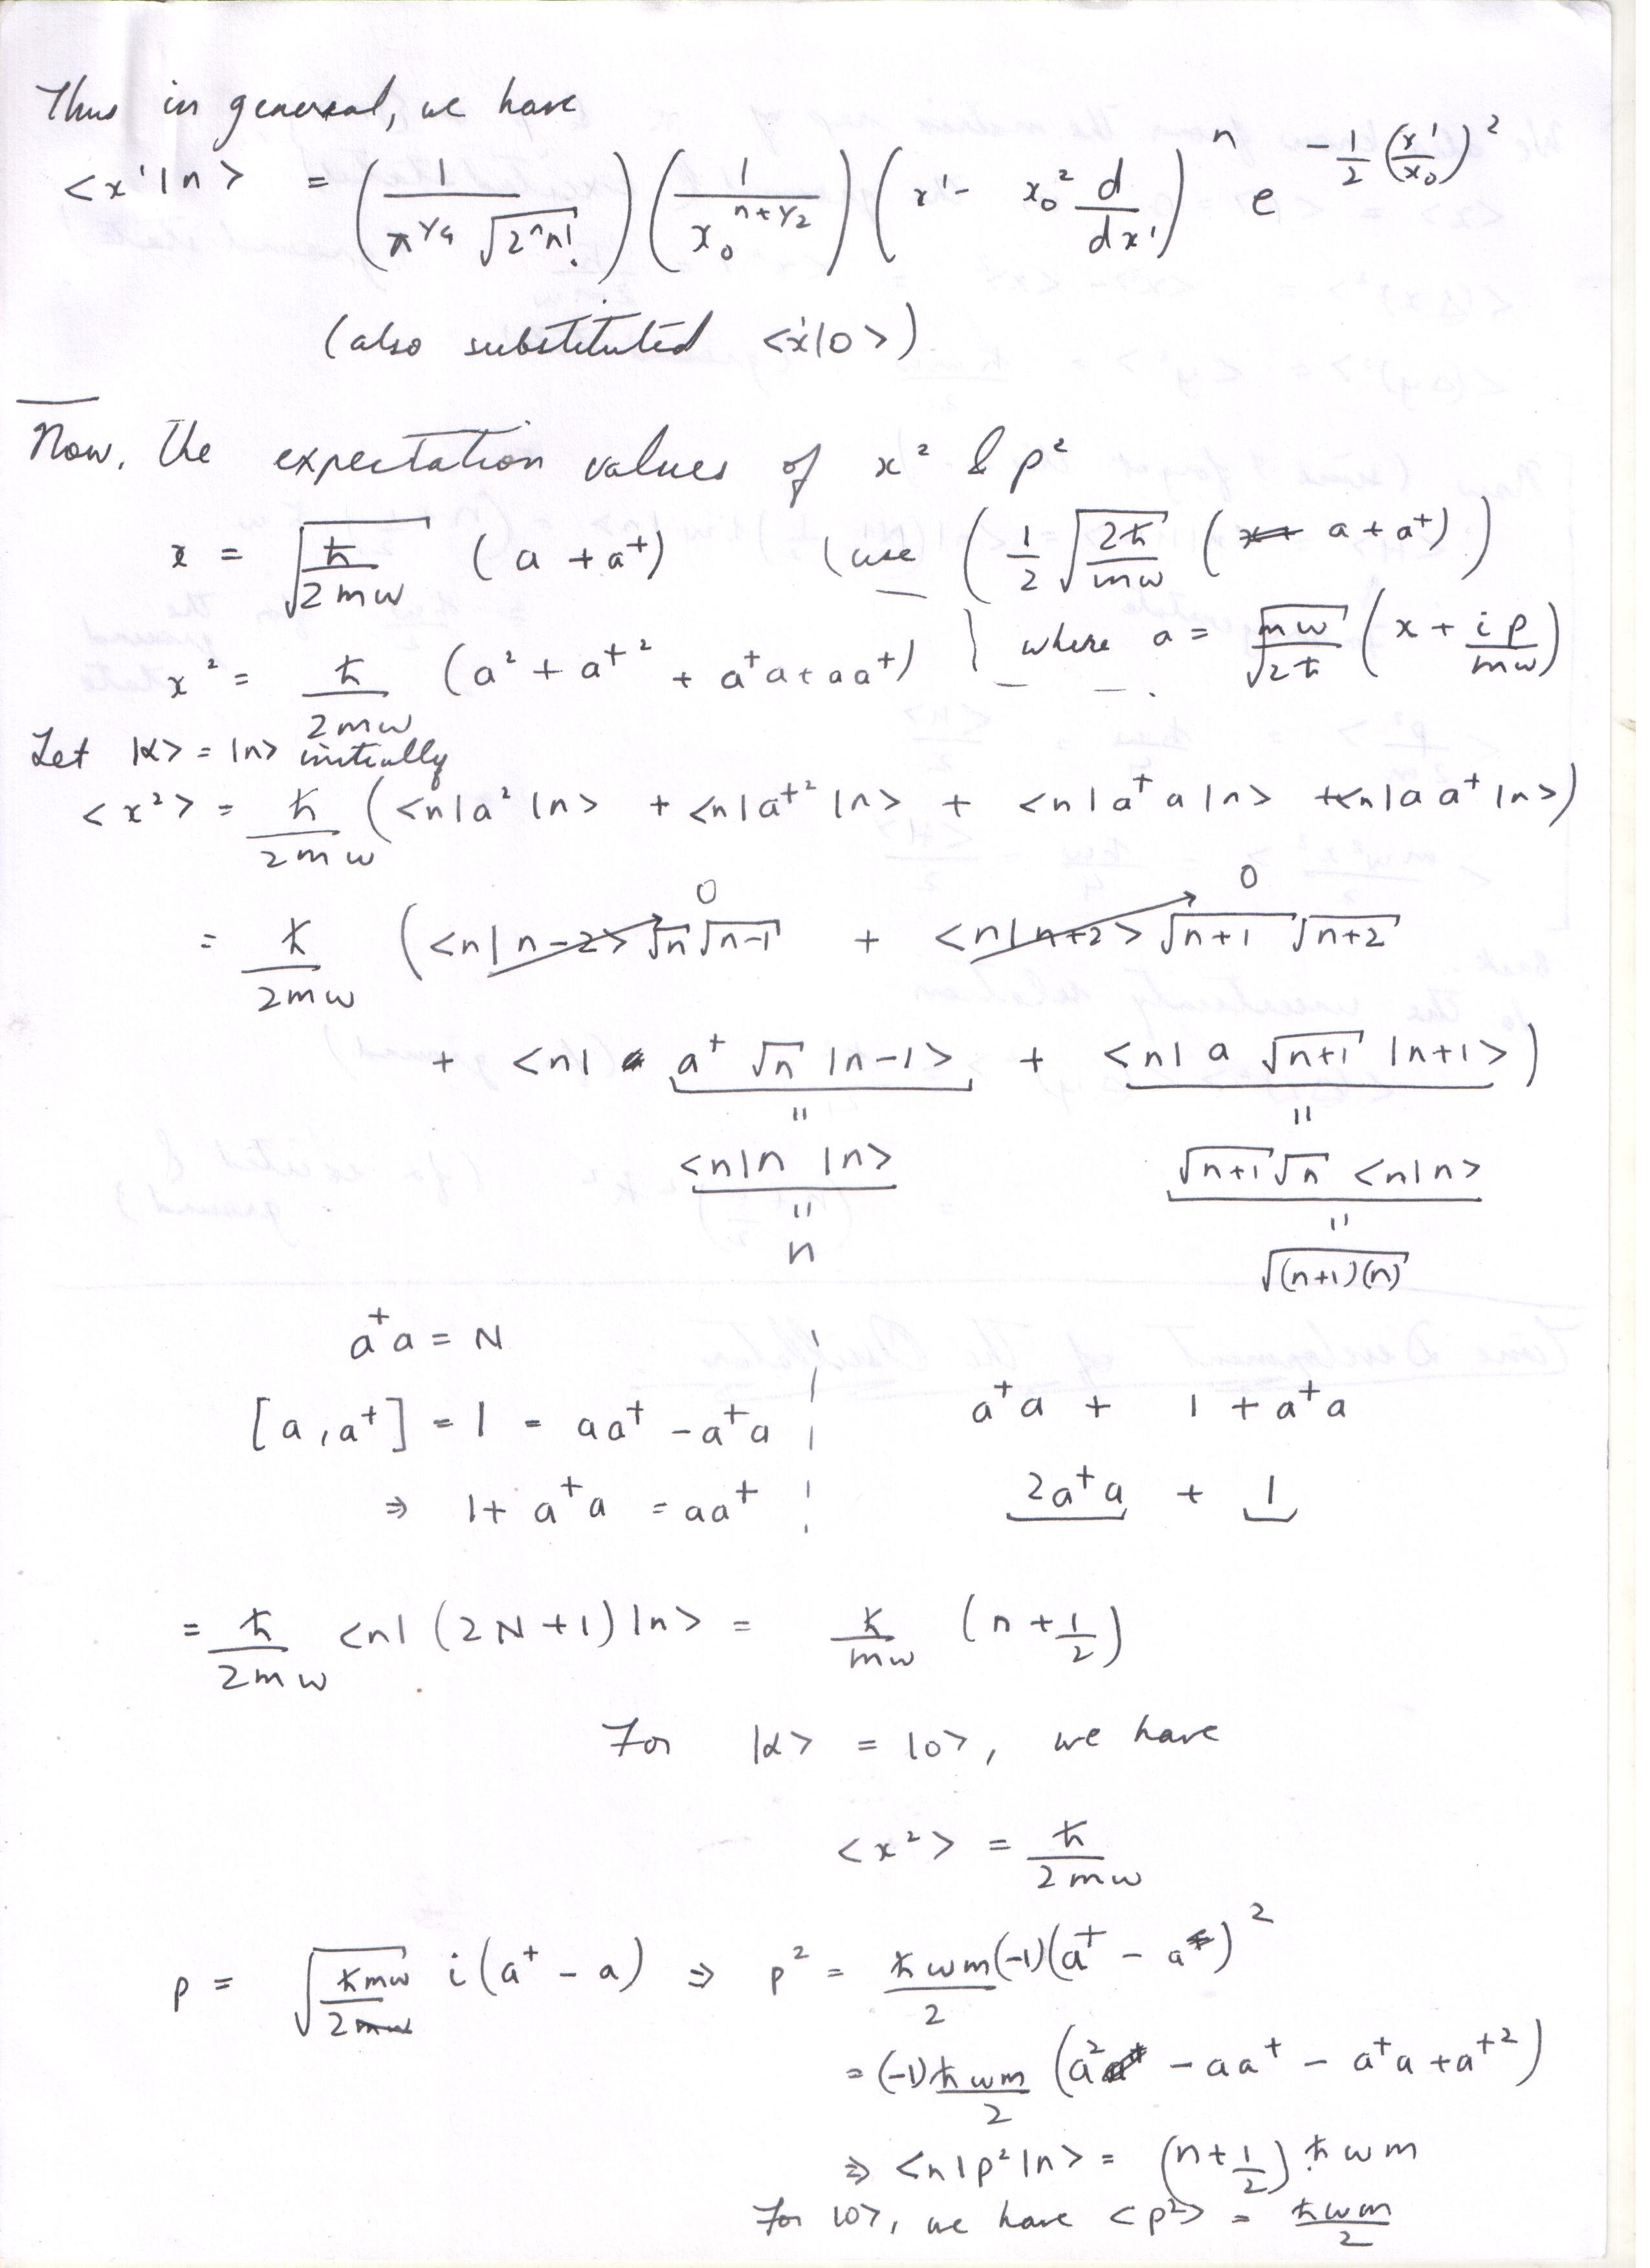 Thus in general, we have
<x'|n> = (1/(π^{1/4} √(2^n n!))) (1/x₀^{n+1/2}) (x' - x₀² d/dx')^n e^{-1/2 (x'/x₀)²}
(also substituted <x'|0>)
Now, the expectation values of x² & p²
x = √(ħ/2mω) (a + a†) (use (1/2 √(2ħ/mω) (a + a†))
x² = ħ/2mω (a² + a†² + a†a + aa†) where a = √(mω/2ħ) (x + ip/mω)
Let |α> = |n> initially
<x²> = ħ/2mω (<n|a²|n> + <n|a†²|n> + <n|a†a|n> + <n|aa†|n>)
= ħ/2mω (<n|n-2> √n √n-1 0 + <n|n+2> √n+1 √n+2 0
+ <n| a† √n |n-1> + <n| a √n+1 |n+1>)
" "
<n|n |n> √n+1 √n <n|n>
" "
n √(n+1)(n)
a†a = N
[a, a†] = 1 = aa† - a†a a†a + 1 + a†a
⇒ 1 + a†a = aa† 2a†a + 1
= ħ/2mω <n|(2N+1)|n> = ħ/mω (n + 1/2)
For |α> = |0>, we have
<x²> = ħ/2mω
p = √(ħmω/2) i(a† - a) ⇒ p² = ħωm/2 (-1)(a† - a)²
= (-1)ħωm/2 (a² - aa† - a†a + a†²)
⇒ <n|p²|n> = (n + 1/2) ħωm
For |0>, we have <p²> = ħωm/2